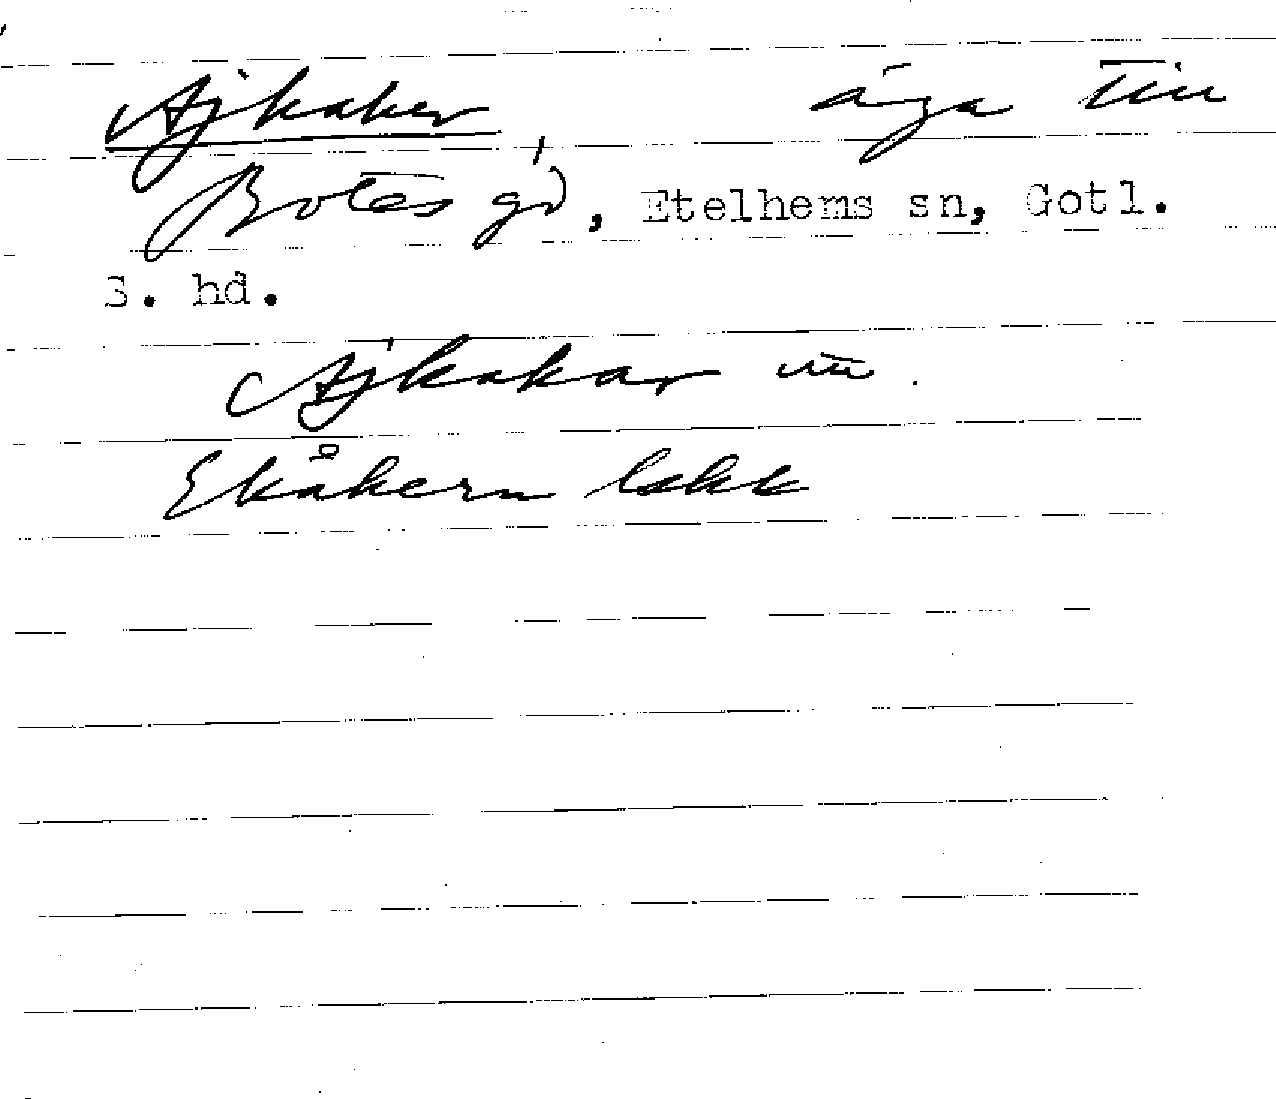 Ajkaker äga till
Botes gd, Etelhems sn, Gotl.
S. hd.
Ajkakar
Ekåkern